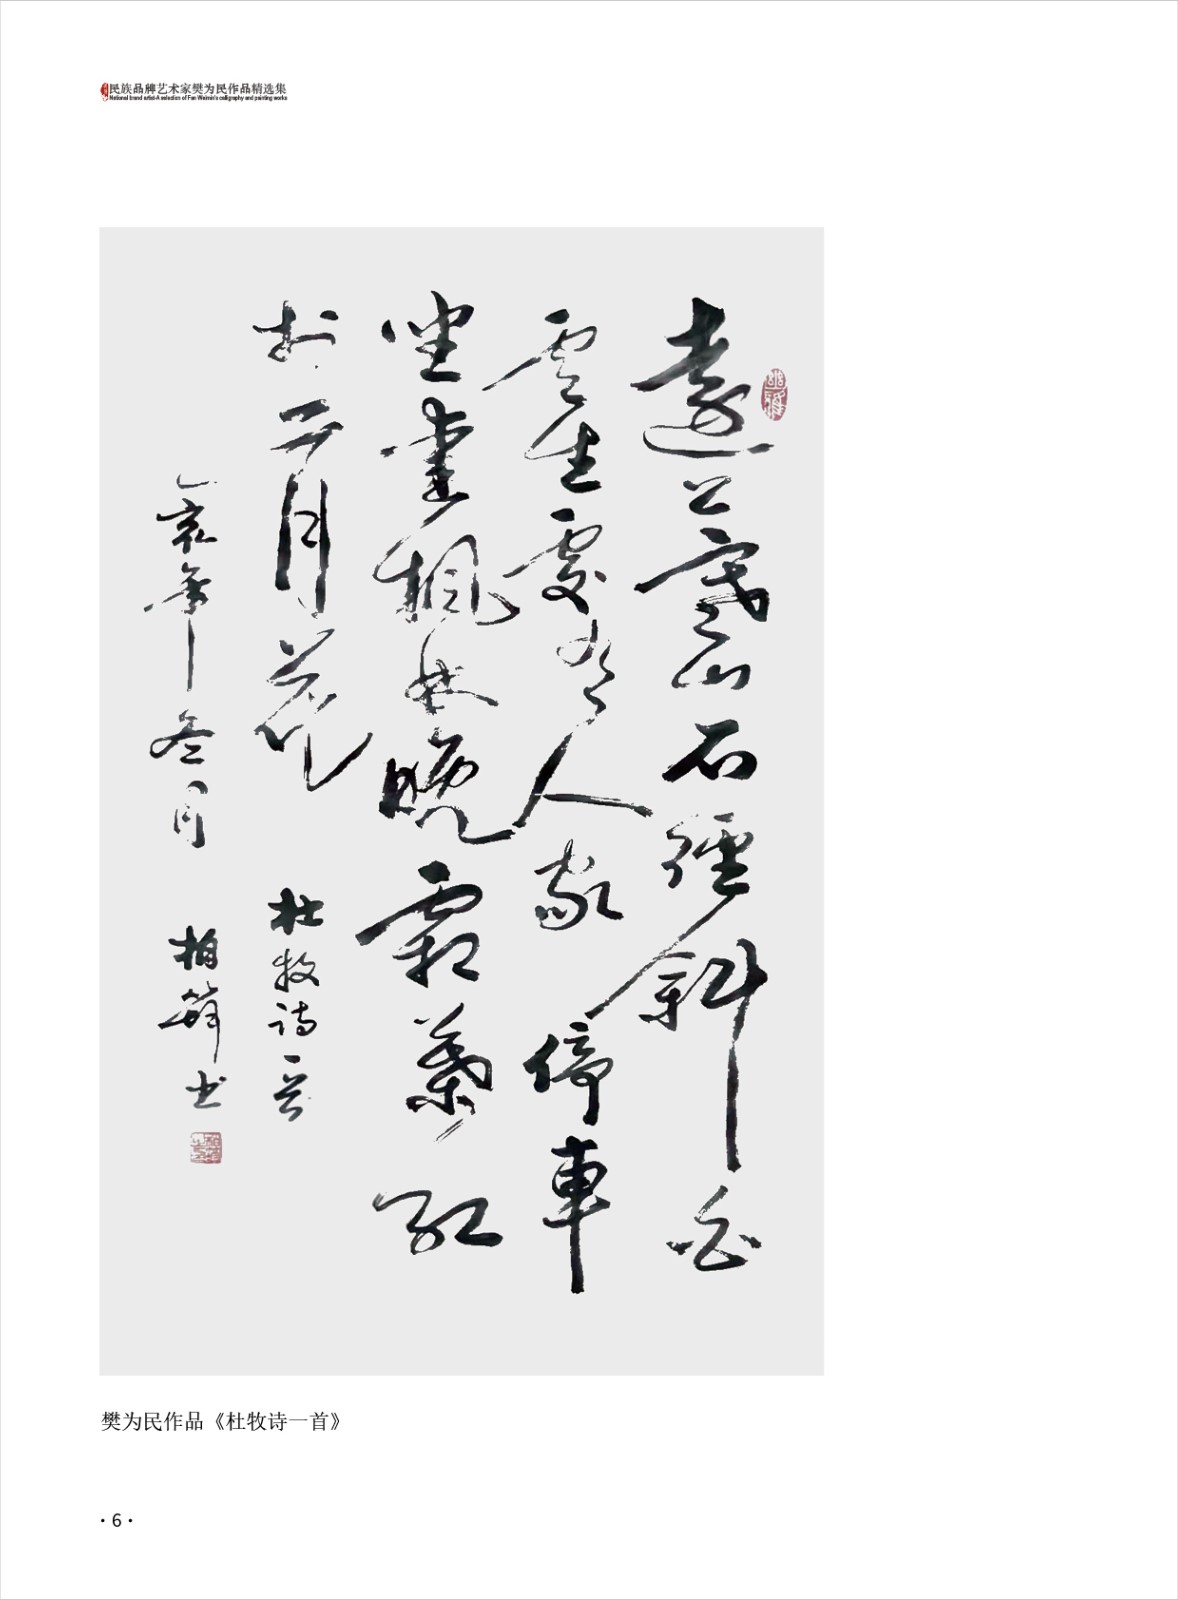 民族品牌艺术家樊为民作品精选集
National brand artist-A selection of Fan Weimin's calligraphy and painting works
遠上寒山石徑斜白
雲生處有人家停車
坐愛楓林晚霜葉紅
於二月花
杜牧詩一首
乙亥年冬月
柏 书
樊为民作品《杜牧诗一首》
·6·